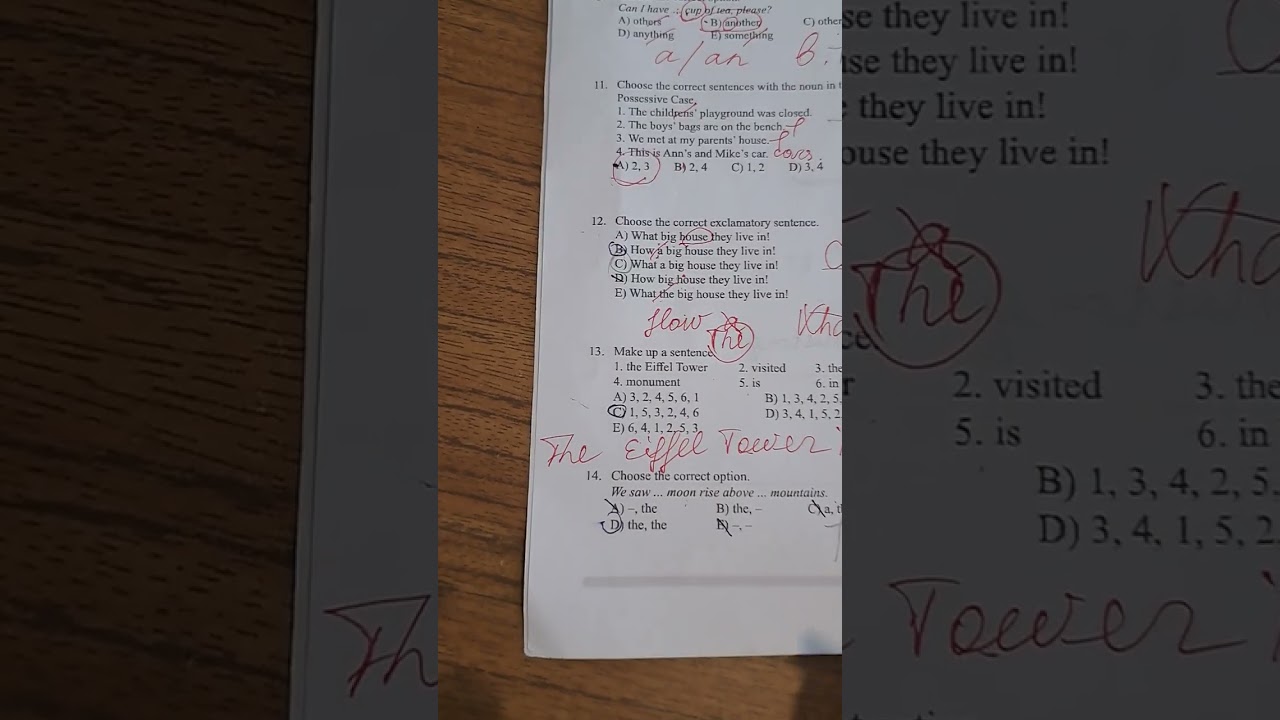 Can I have ... cup of tea, please?
A) others B) another C) other
D) anything E) something
a/an B.
11. Choose the correct sentences with the noun in t
Possessive Case.
1. The childrens' playground was closed.
2. The boys' bags are on the bench.
3. We met at my parents' house.
4. This is Ann's and Mike's car. cars
A) 2, 3 B) 2, 4 C) 1, 2 D) 3, 4
12. Choose the correct exclamatory sentence.
A) What big house they live in!
B) How a big house they live in!
C) What a big house they live in!
D) How big house they live in!
E) What the big house they live in!
How a The Wha
13. Make up a sentence
1. the Eiffel Tower 2. visited 3. the
4. monument 5. is 6. in
A) 3, 2, 4, 5, 6, 1 B) 1, 3, 4, 2, 5.
C) 1, 5, 3, 2, 4, 6 D) 3, 4, 1, 5, 2
E) 6, 4, 1, 2, 5, 3
The Eiffel Tower
14. Choose the correct option.
We saw ... moon rise above ... mountains.
A) –, the B) the, – C) a, t
D) the, the E) –, –
se they live in!
se they live in!
they live in!
ouse they live in!
The
Wha
2. visited 3. the
5. is 6. in
B) 1, 3, 4, 2, 5.
D) 3, 4, 1, 5, 2
Th
Tower